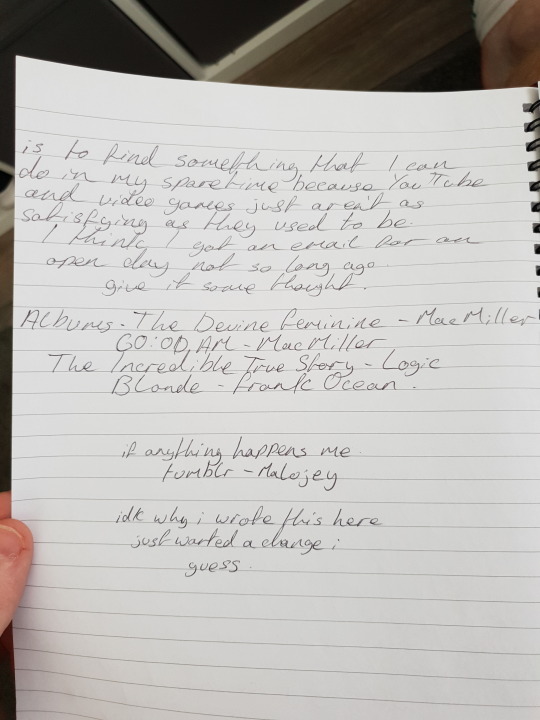 is to find something that I can
do in my sparetime because YouTube
and video games just aren't as
satisfying as they used to be.
I think I got an email for an
open day not so long ago.
give it some thought.
Albums - The Devine Feminine - Mac Miller
GO:OD AM - Mac Miller
The Incredible True Story - Logic
Blonde - Frank Ocean.
if anything happens me.
tumblr - Malojey
idk why i wrote this here
just wanted a change i
guess.